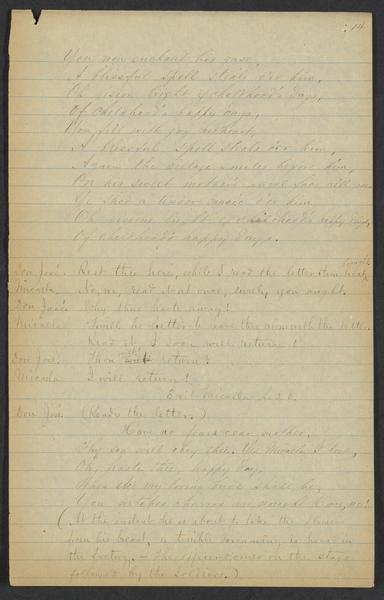 14.
You now enchant his gaze,
A blissful spell steals o'er him,
Oh vision bright of childhood's days,
Of childhood's happy days,
You fill with joy
A blissful spell steals o'er him,
Again the village smiles before him,
his sweet mother's
a tender music o'er him
Oh visions bright of childhood's days,
Of childhood's happy days.
Don José. Rest thee here, while I read the letter
Micaela. No, no, read it at once, surely, you ought.
Don José. Why thus haste away!
Micaela. 'Twill be better to leave thee alone with the letter.
Read it, I soon will return!
Don José. Then return!
Micaela. I will return!
Exit Micaela
Don José. (Reads the letter.)
Have no fears dear mother.
Thy son will obey thee. Yes Micaela I love,
Oh, haste thee, happy day,
When she my loving bride shall be,
witches charms
(At the instant he is about to take the flower
from his breast, a terrible screaming is heard in
the factory. — The officer comes on the stage
followed by the soldiers.)